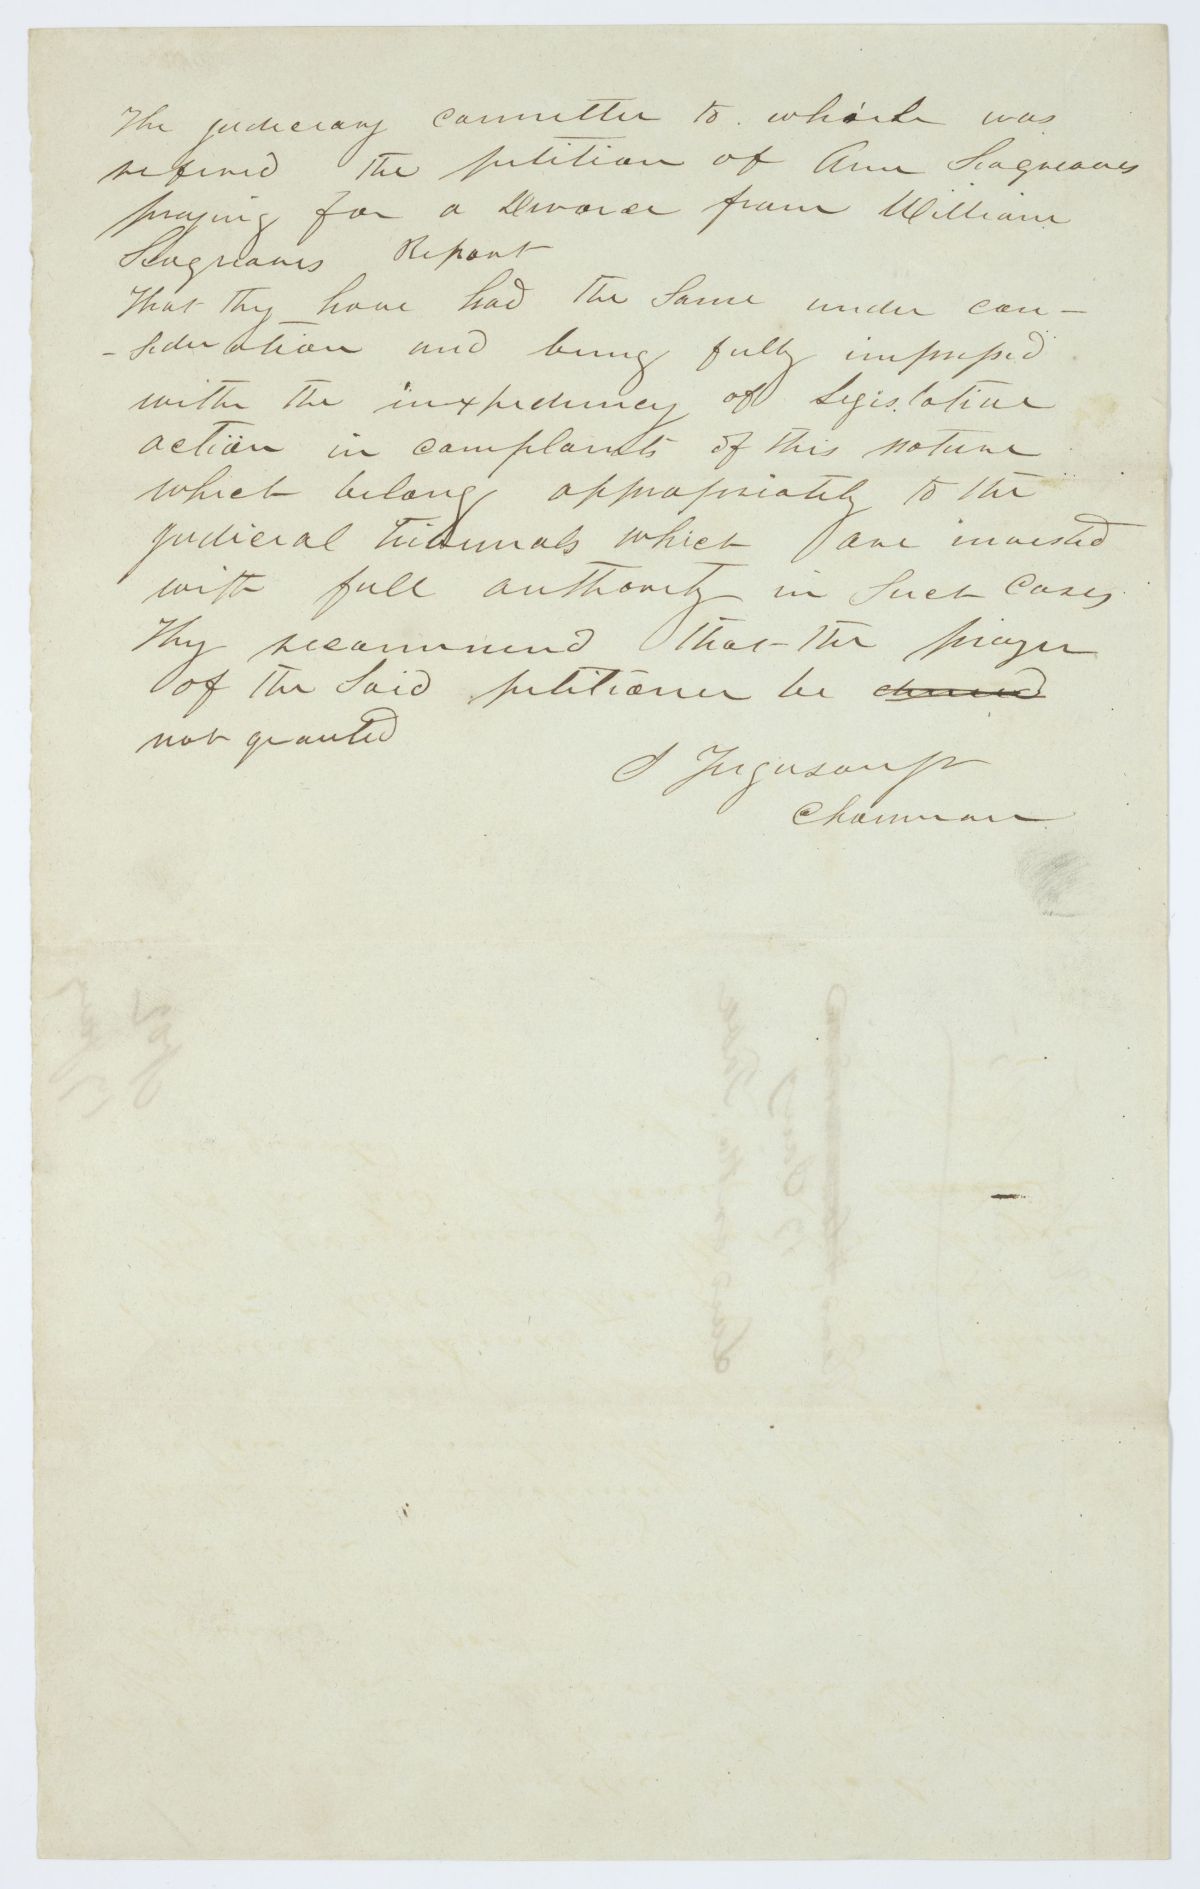 The judiciary committee to which was
refered the petition of Ann Seagreaves
praying for a Divorce from William
Seagreaves Report
That they have had the same under con-
-sideration and being fully impressed
with the inexpediency of Legislative
action in complaints of this nature
which belong appropriately to the
judicial tribunals which are invested
with full authority in such cases
They recommend that the prayer
of the said petitioner be denied
not granted
J Ferguson Jr
Chairman